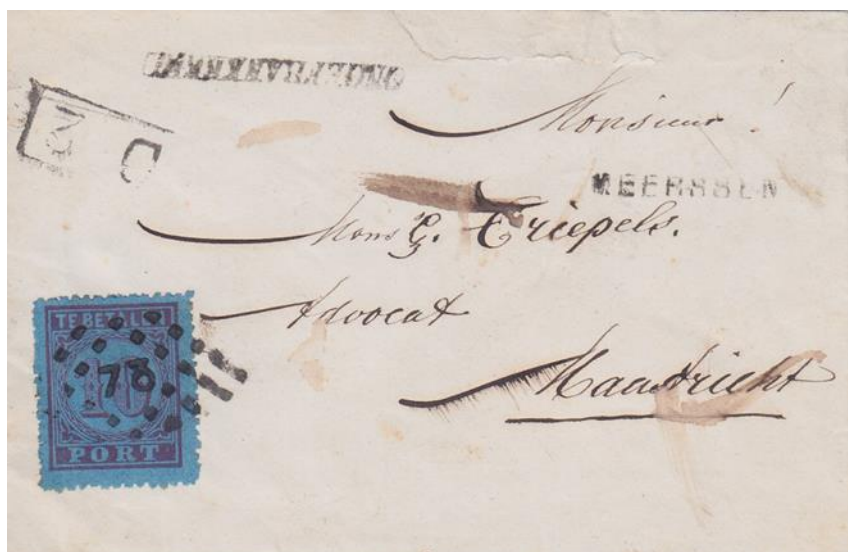 ONGEFRANKEERD
Monsieur !
MEERSSEN
Mons G. Triepels.
Advocat
Maastricht
TE BETALEN
10
78
PORT